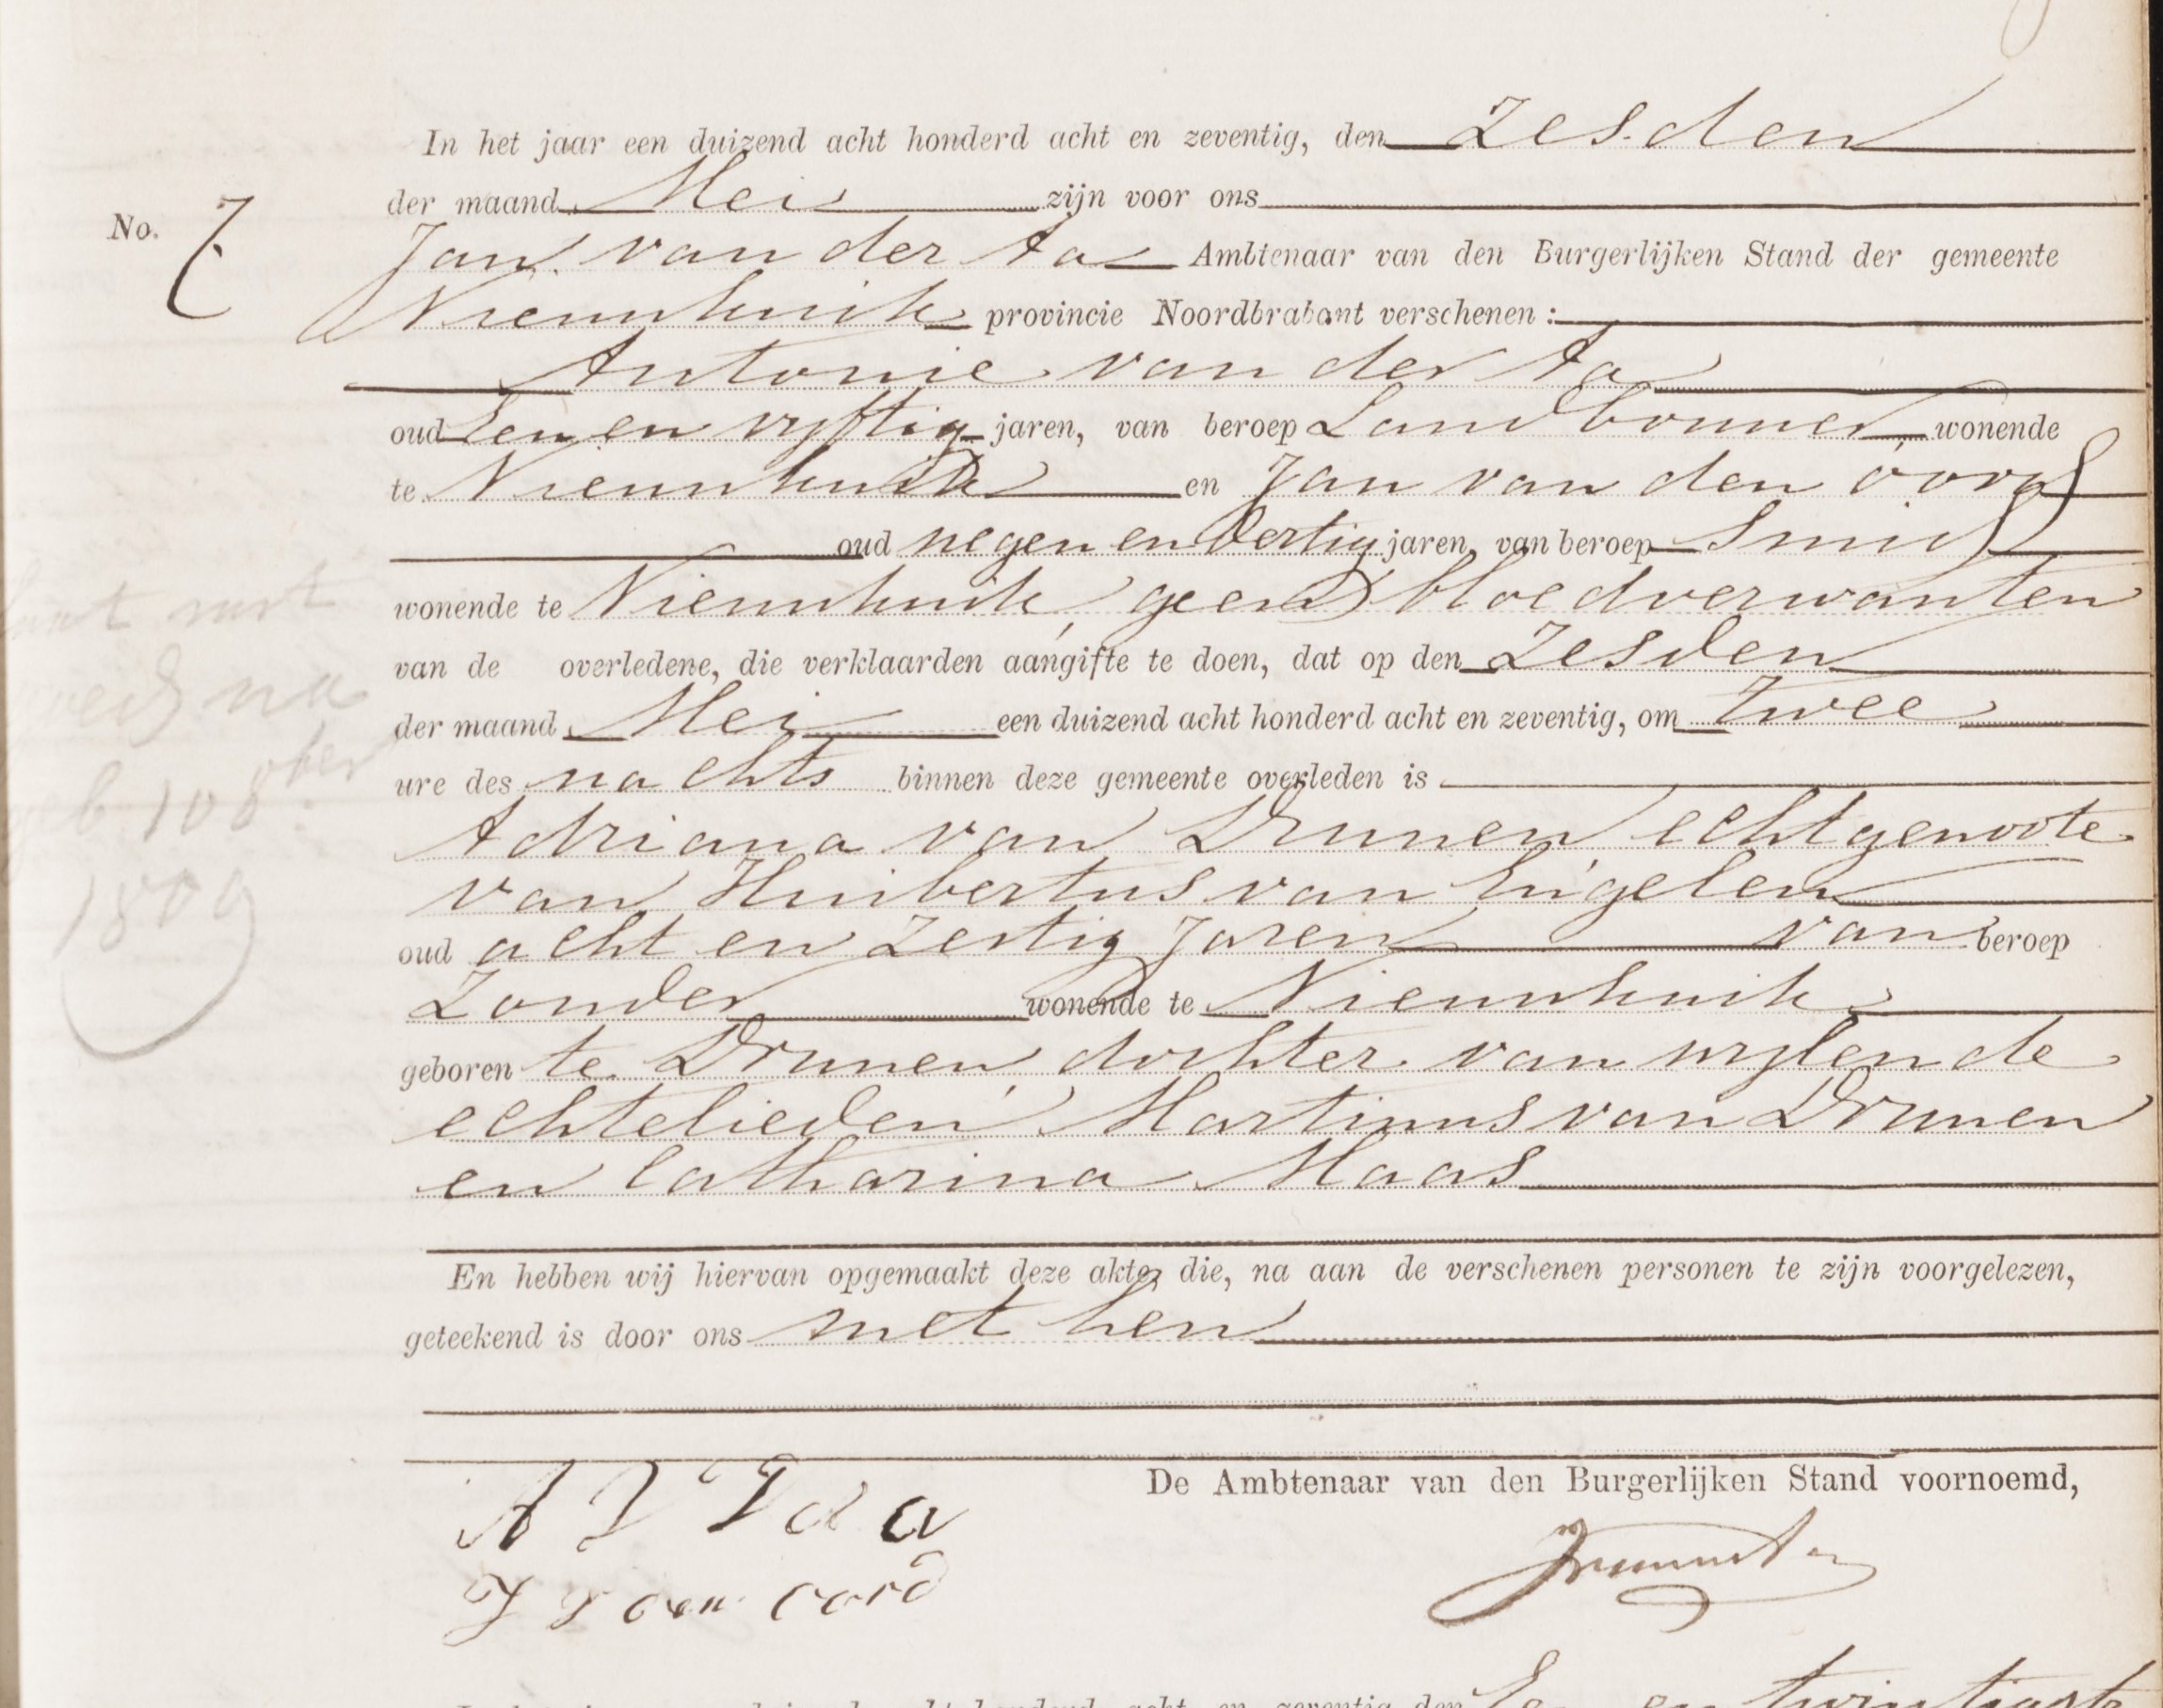 In het jaar een duizend acht honderd acht en zeventig, den Zesden
der maand Mei zijn voor ons
No. 7
Jan van der Aa Ambtenaar van den Burgerlijken Stand der gemeente
Nieuwkuik provincie Noordbrabant verschenen :
Antonie van der Aa
oud Een en vyftig jaren, van beroep Landbouwer wonende
te Nieuwkuik en Jan van den Oord
oud negen en dertig jaren, van beroep Smid
wonende te Nieuwkuik, geen bloedverwanten
van de overledene, die verklaarden aangifte te doen, dat op den Zesden
der maand Mei een duizend acht honderd acht en zeventig, om twee
ure des nachts binnen deze gemeente overleden is
Adriana van Drunen echtgenoote
van Huibertus van Engelen
oud acht en Zestig Jaren van beroep
Zonder wonende te Nieuwkuik
geboren te Drunen, dochter van wylen de
echtelieden Martinus van Drunen
en Catharina Maas
En hebben wij hiervan opgemaakt deze akte, die, na aan de verschenen personen te zijn voorgelezen,
geteekend is door ons met hen
De Ambtenaar van den Burgerlijken Stand voornoemd,
A V D a
J V den oord
na
10 8ber
1809